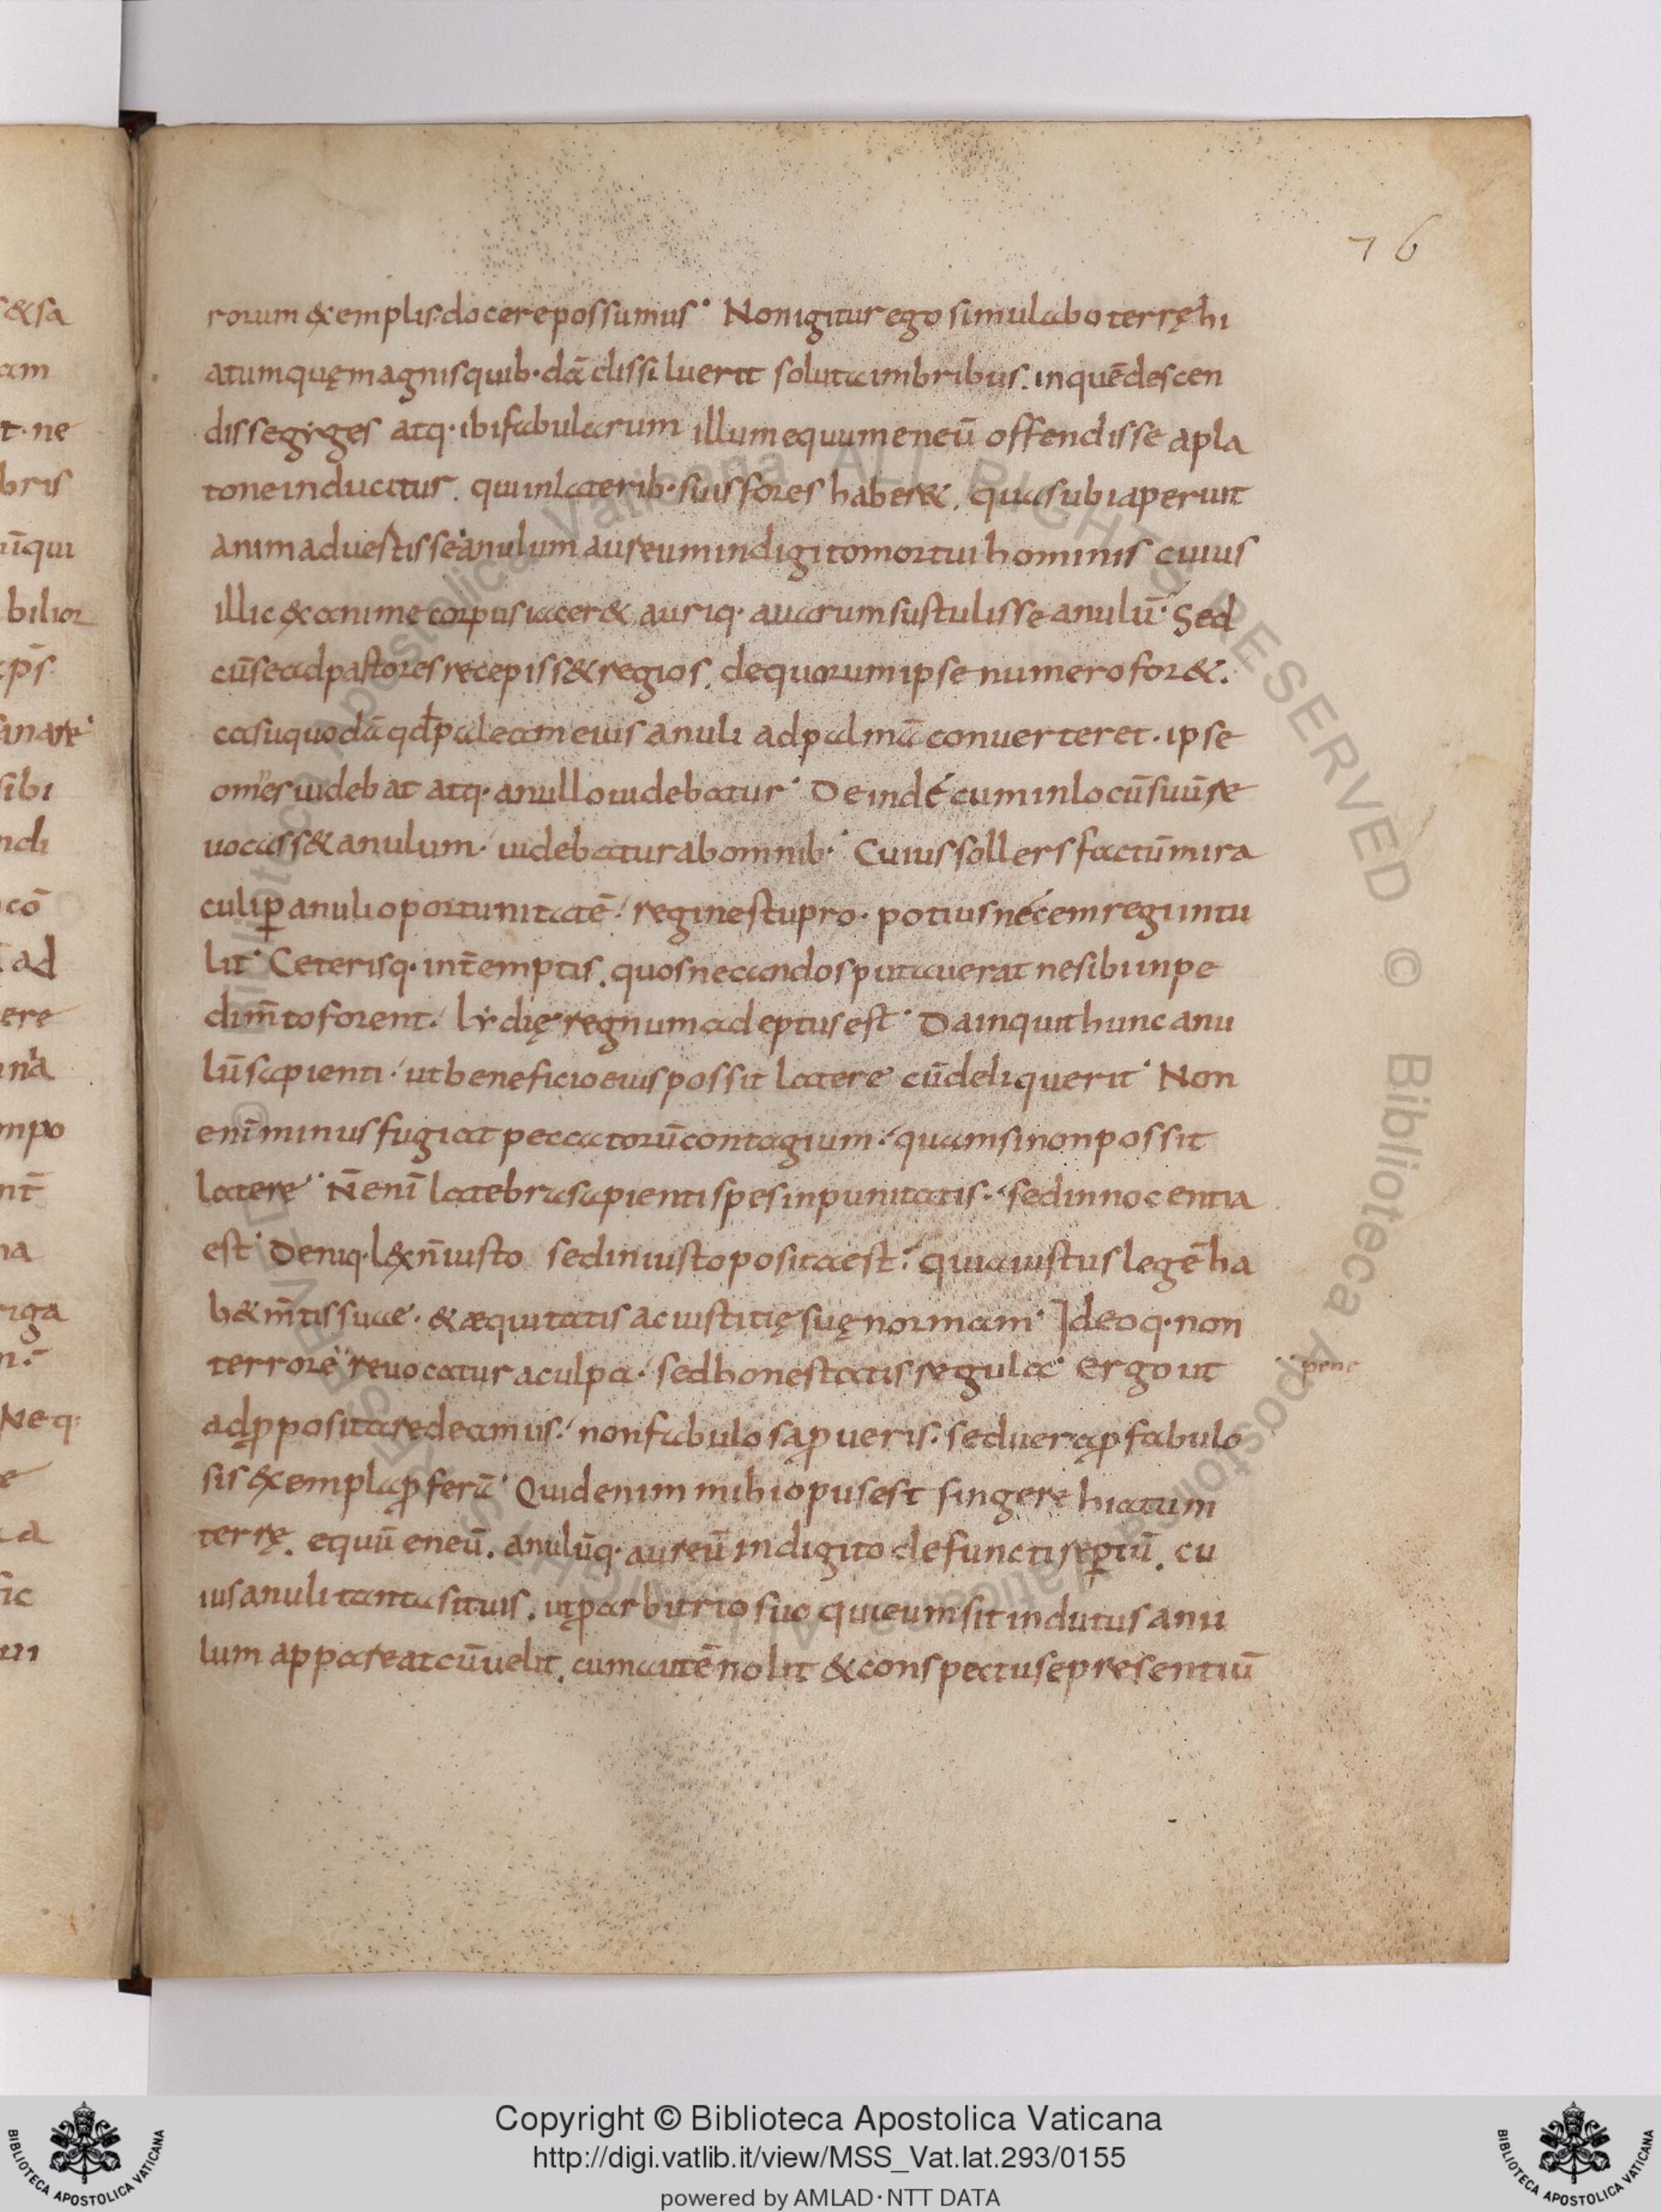 76
rorum &emplis docere possumus· Non igitur ego simulabo terrę hi
atum quę magnis quib· dā dissiluerit soluta imbribus. in quē descen
disse gyges atq· ibi fabularum illum equum eneū offendisse a pla
tone inducitur. qui in laterib· suis fores haber&. quas ubi aperuit
animaduestisse anulum aureum in digito mortui hominis cuius
illic & anime corpus iacer& auriq· auarum sustulisse anulū· Sed
cū se ad pastores recepiss& regios. de quorum ipse numero for&.
casu quodā qđ paleam eius anuli ad palmā conuerteret. ipse
om̄es uidebat atq· a nullo uidebatur· Deinde cum in locū suū re
uocass& anulum· uidebatur ab omnib·· Cuius sollers factū mira
culi ꝑ anuli oportunitatē· regine stupro· potius necem regi intu
lit· Ceterisq· int̄emptis. quos necandos putauerat ne sibi inpe
dim̄to forent· lydię regnum adeptus est· Da inquit hunc anu
lū sapienti· ut beneficio eius possit latere cū deliquerit· Non
eni minus fugiat peccatorū contagium· quam si non possit
latere· N̄ eni latebra sapienti spes inpunitatis· sed innocentia
est· Deniq· l& n̄ iusto sed iniusto posita est· quia iustus legē ha
b& m̄tis suae· & æquitatis ac iustitię suę normam· Ideoq· non
terrore reuocatur a culpa· sed honestatis regula· Ergo ut
pene
ad ꝓposita redeamus· non fabulosa ꝓ ueris· sed uera ꝓ fabulo
sis &empla ꝓferā· Quid enim mihi opus est fingere hiatum
terrę. equū eneū. anulūq· aureū in digito defuncti reꝑtū. cu
ius anuli tanta sit uis. ut ꝓ arbitrio suo qui eum sit indutus anu
lum appareat cū uelit. cum autē nolit & conspectu se presentiū
Copyright © Biblioteca Apostolica Vaticana
http://digi.vatlib.it/view/MSS_Vat.lat.293/0155
powered by AMLAD·NTT DATA
BIBLIOTECA APOSTOLICA VATICANA
BIBLIOTECA APOSTOLICA VATICANA